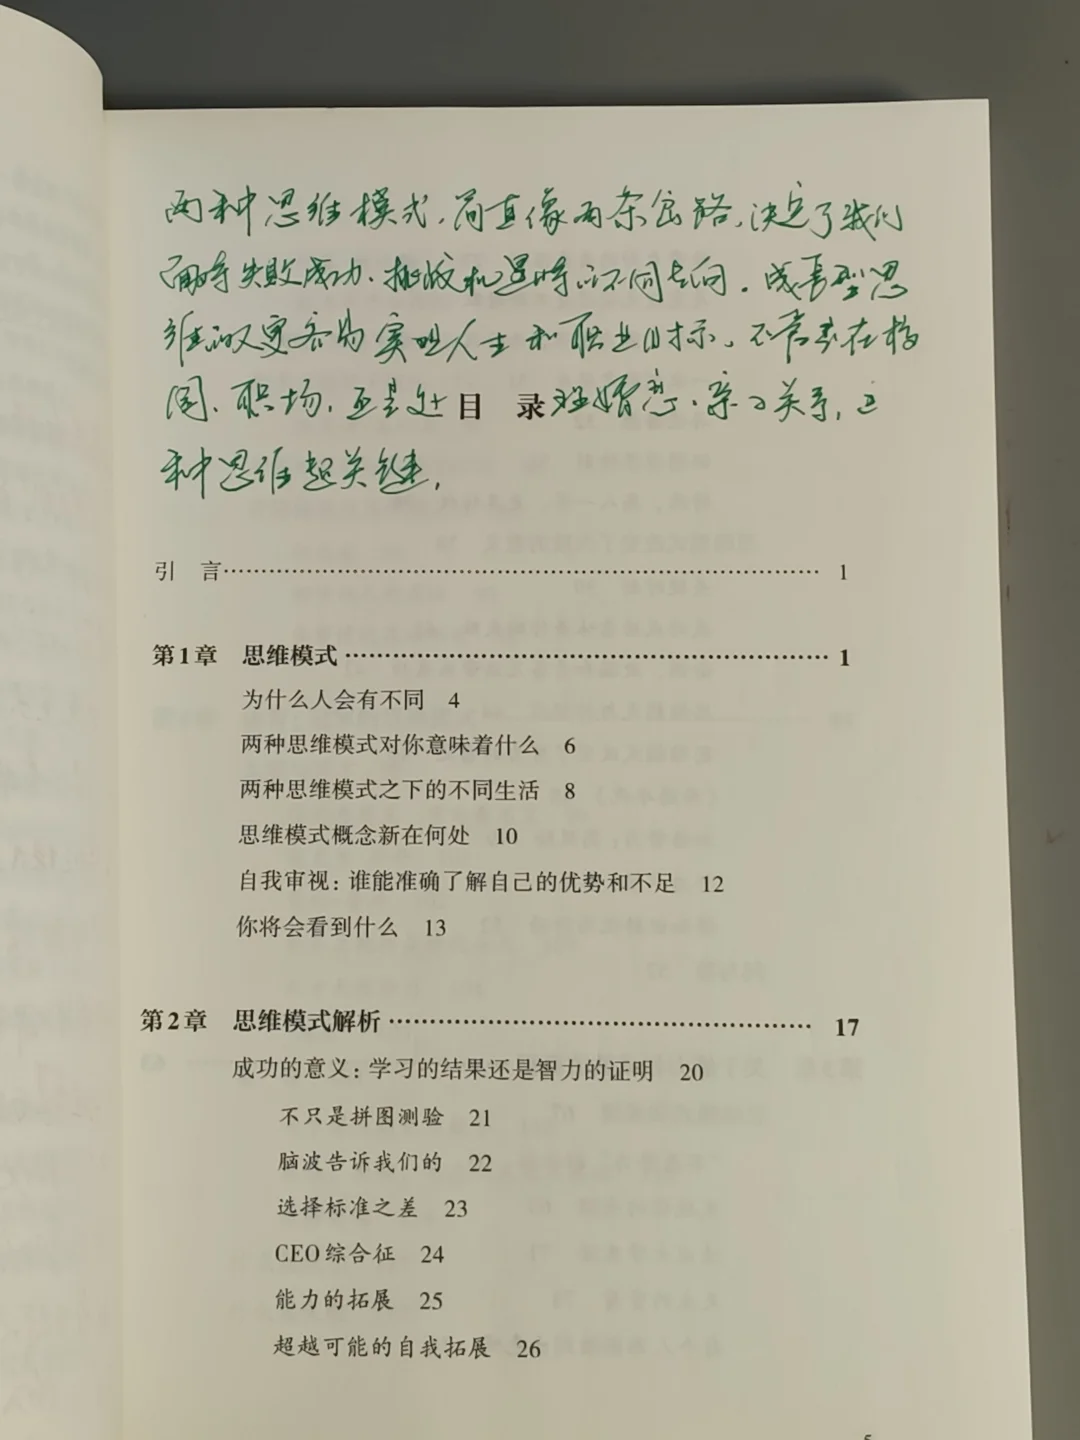 两种思维模式，简直像两条岔路，决定了我们
面对失败成功、挑战机遇时的不同走向。成长型思
维的人更容易实现人生和职业目标。不管是在校
园、职场，还是处 目 录 理婚恋、亲子关系，这
种思维起关键。
引 言……………………………… 1
第1章 思维模式……………………………… 1
为什么人会有不同 4
两种思维模式对你意味着什么 6
两种思维模式之下的不同生活 8
思维模式概念新在何处 10
自我审视：谁能准确了解自己的优势和不足 12
你将会看到什么 13
第2章 思维模式解析……………………………… 17
成功的意义：学习的结果还是智力的证明 20
不只是拼图测验 21
脑波告诉我们的 22
选择标准之差 23
CEO综合征 24
能力的拓展 25
超越可能的自我拓展 26